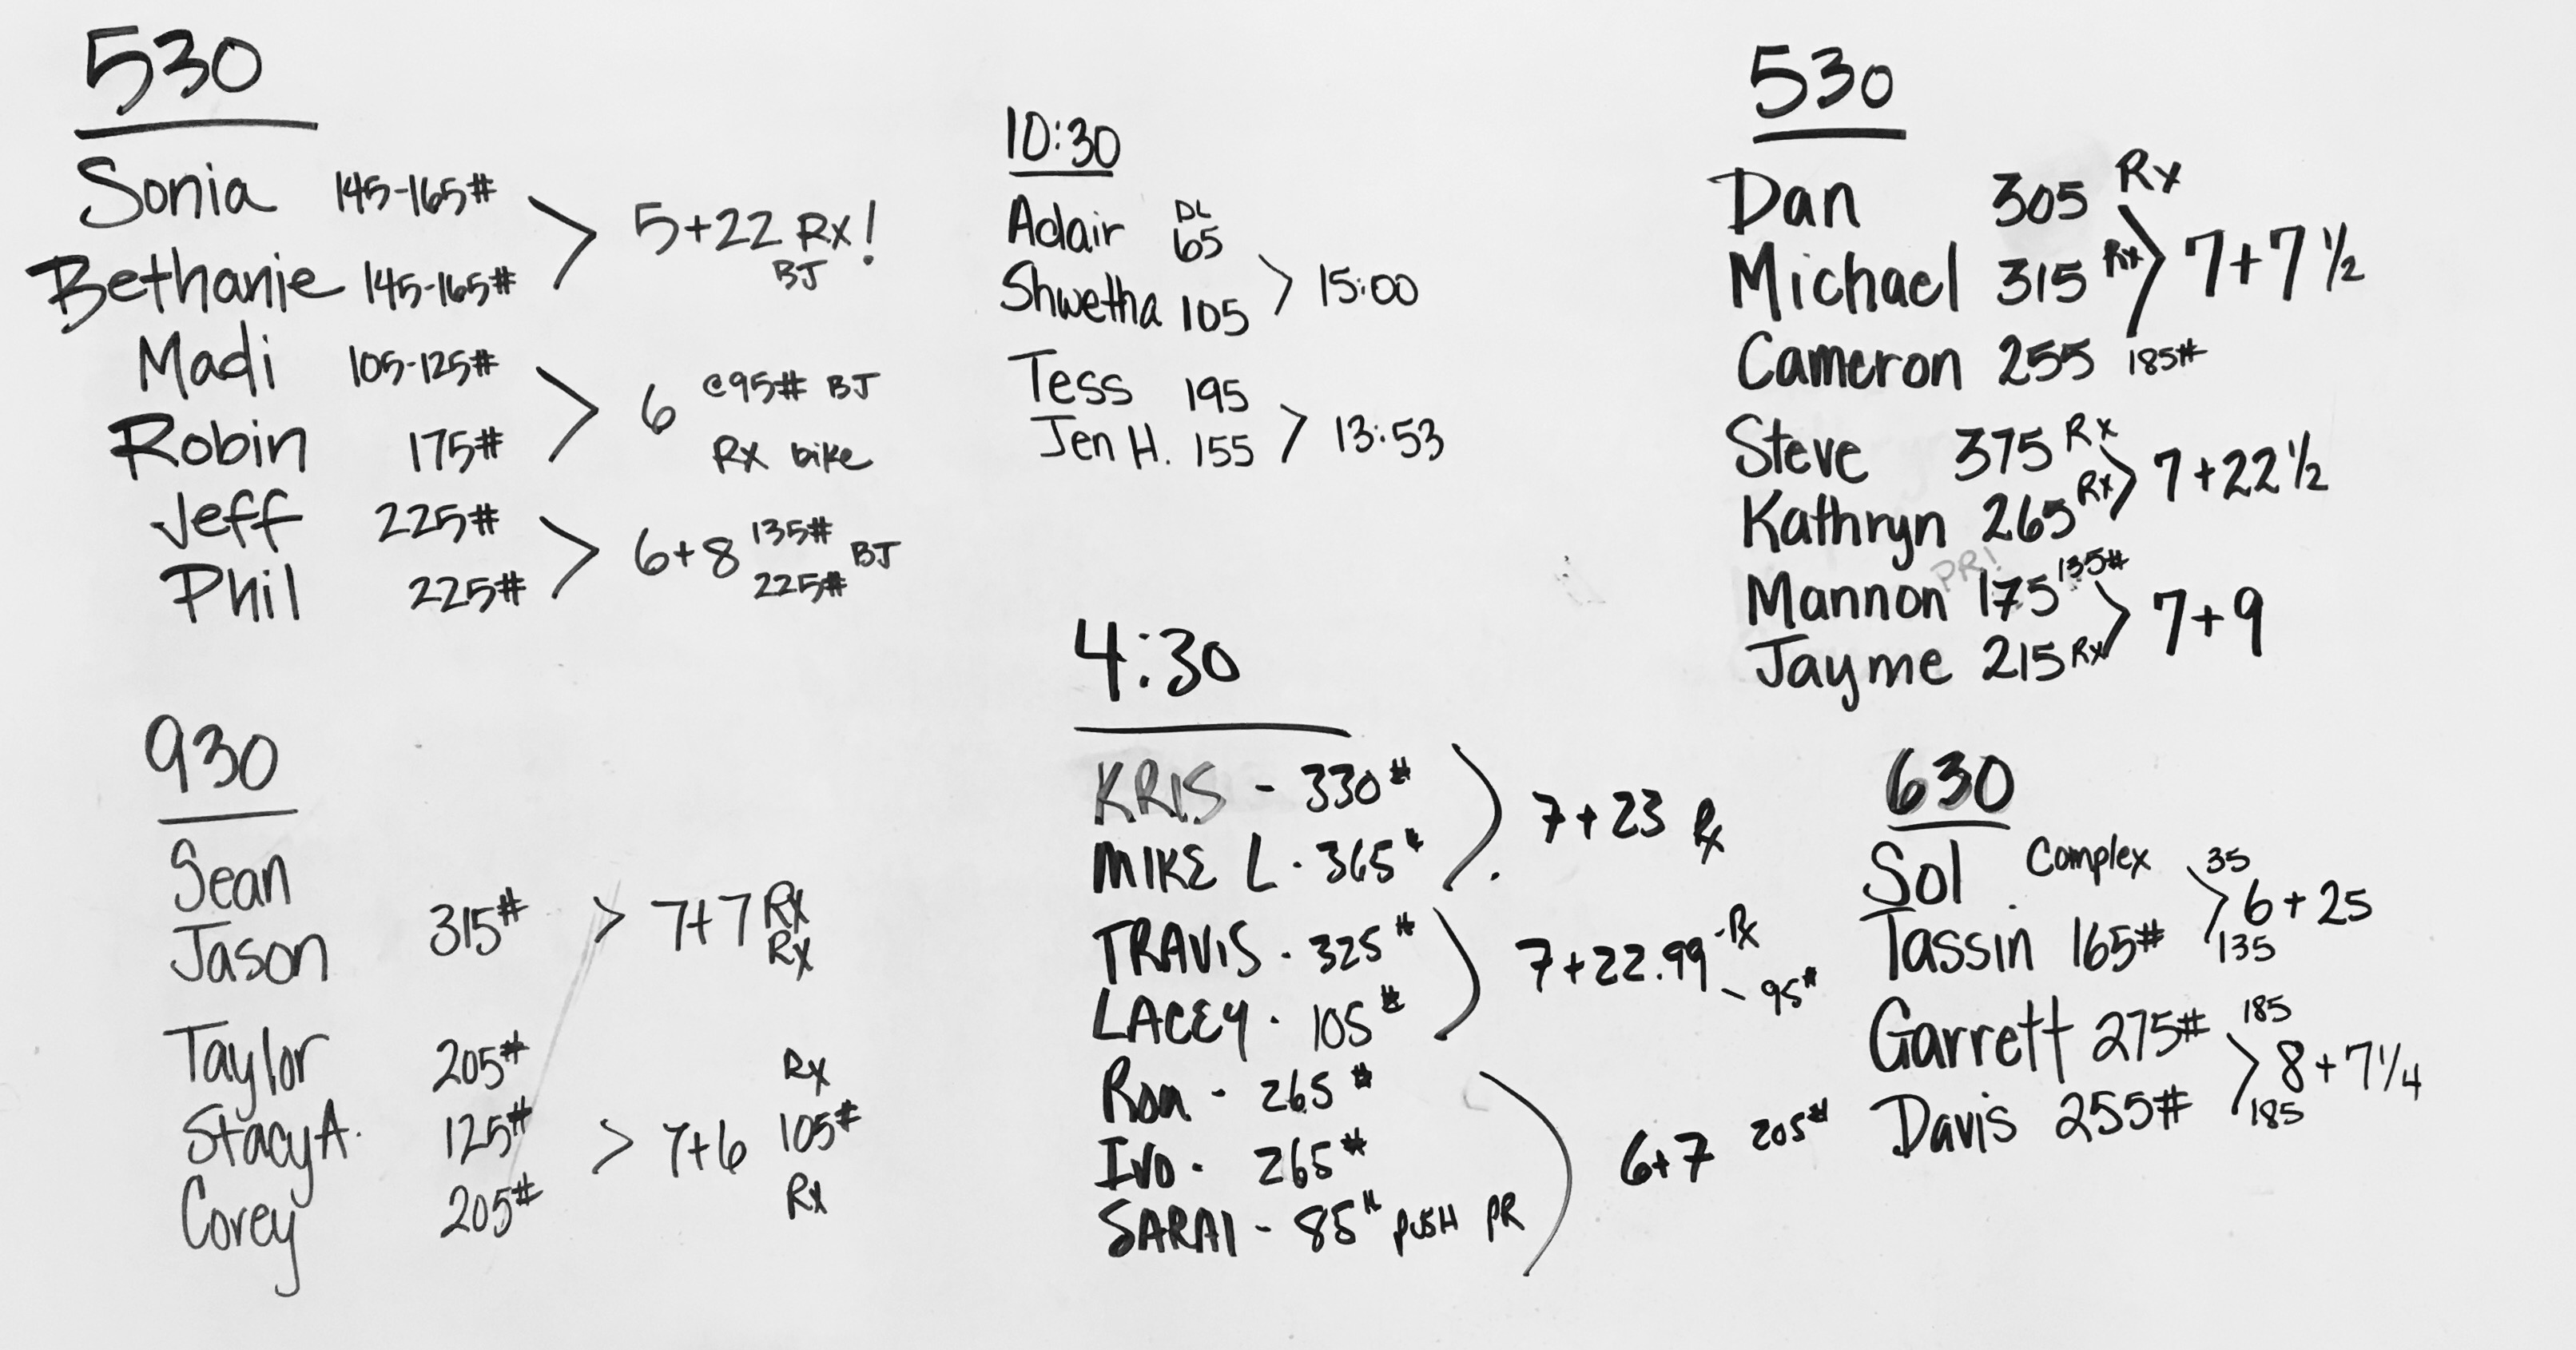 530
Sonia 145-165# > 5+22 Rx!
Bethanie 145-165# BJ
Madi 105-125# > 6 @95# BJ
Robin 175# Rx bike
Jeff 225# > 6+8 135# BJ
Phil 225# 225#
930
Sean
Jason 315# > 7+7 Rx
Rx
Taylor 205# Rx
Stacy A. 125# > 7+6 105#
Corey 205# Rx
10:30
Adair DL 65
Shwetha 105 > 15:00
Tess 195
Jen H. 155 > 13:53
4:30
KRIS - 330#
MIKE L - 365# 7+23 Rx
TRAVIS - 325# 7+22.99 - Rx
LACEY - 105# - 95#
Ron - 265#
Ivo - 265# 6+7 205#
SARAI - 85# PUSH PR
530
Dan 305 Rx
Michael 315 Rx > 7+7 1/2
Cameron 255 185#
Steve 375 Rx
Kathryn 265 Rx > 7+22 1/2
PR!
Mannon 175 135#
Jayme 215 Rx > 7+9
630
Sol Complex 35
> 6+25
Tassin 165# 135
Garrett 275# 185
> 8+7 1/4
Davis 255# 185